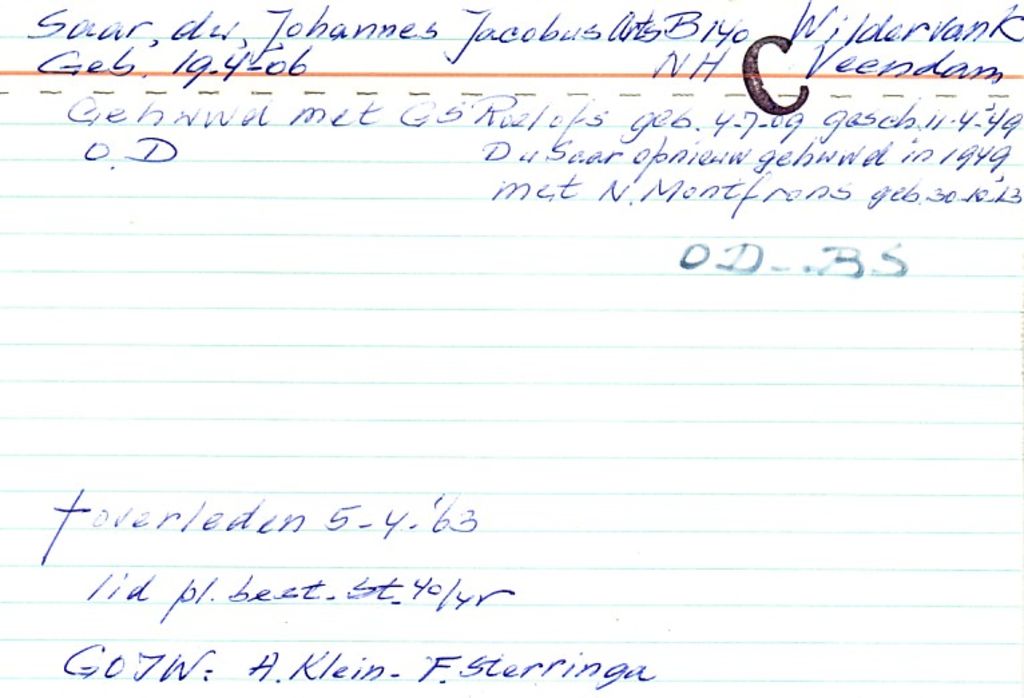 Saar, du, Johannes Jacobus Arts B 140 Wildervank
Geb. 19-4-06 NH C Veendam
Gehuwd met GS Roelofs geb. 4-7-09 gesch. 11-4-'49
O.D Du Saar opnieuw gehuwd in 1949
met N. Montfrans geb. 30-10-'13
OD-.BS
† overleden 5-4-'63
lid pl. best. St. 40/45
GOIW: A. Klein - F. Sterringa